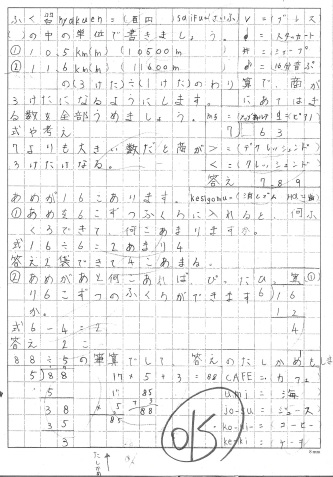 ふく器 hyakuen=(百円) saifu=(さいふ) V=ブレス
( )の中の単位で書きましょう。 =スタッカート
① 10.5km(m) (10500m) #=シャープ
② 11.6km(m) (11600m) =16分音ぷ
の(3けた)÷(1けた)のわり算で、商が
3けたになるようにします。 にあてはま
る数を全部うめましょう。
7) 63
式や考え
7よりも大きい数だと商が >=(デクレッシェンド)
3けたになる。 <=(クレッシェンド)
答え 7・8・9
あめが16こあります。 kesigomu=(消しゴム)
①あめを6こずつふくろに入れると、何ふ
くろできて、何こあまりますか。
式 16÷6=2あまり4
答え 2袋できて4こあまる。
②あめがあと何こあれば、ぴったり 筆①
6こずつのふくろができます 6)16
か。 12
式 6-4=2 4
答え 2こ
88÷5の筆算でして、答えのたしかめをしま
5)88 17×5+3=88 CAFE=カフェ
5 17 85 umi=海
38 ×5 +3 jo-su=ジュース
35 85 88 ko-hi-=コーヒー
3 ke-ki=ケーキ
たしかめ↑